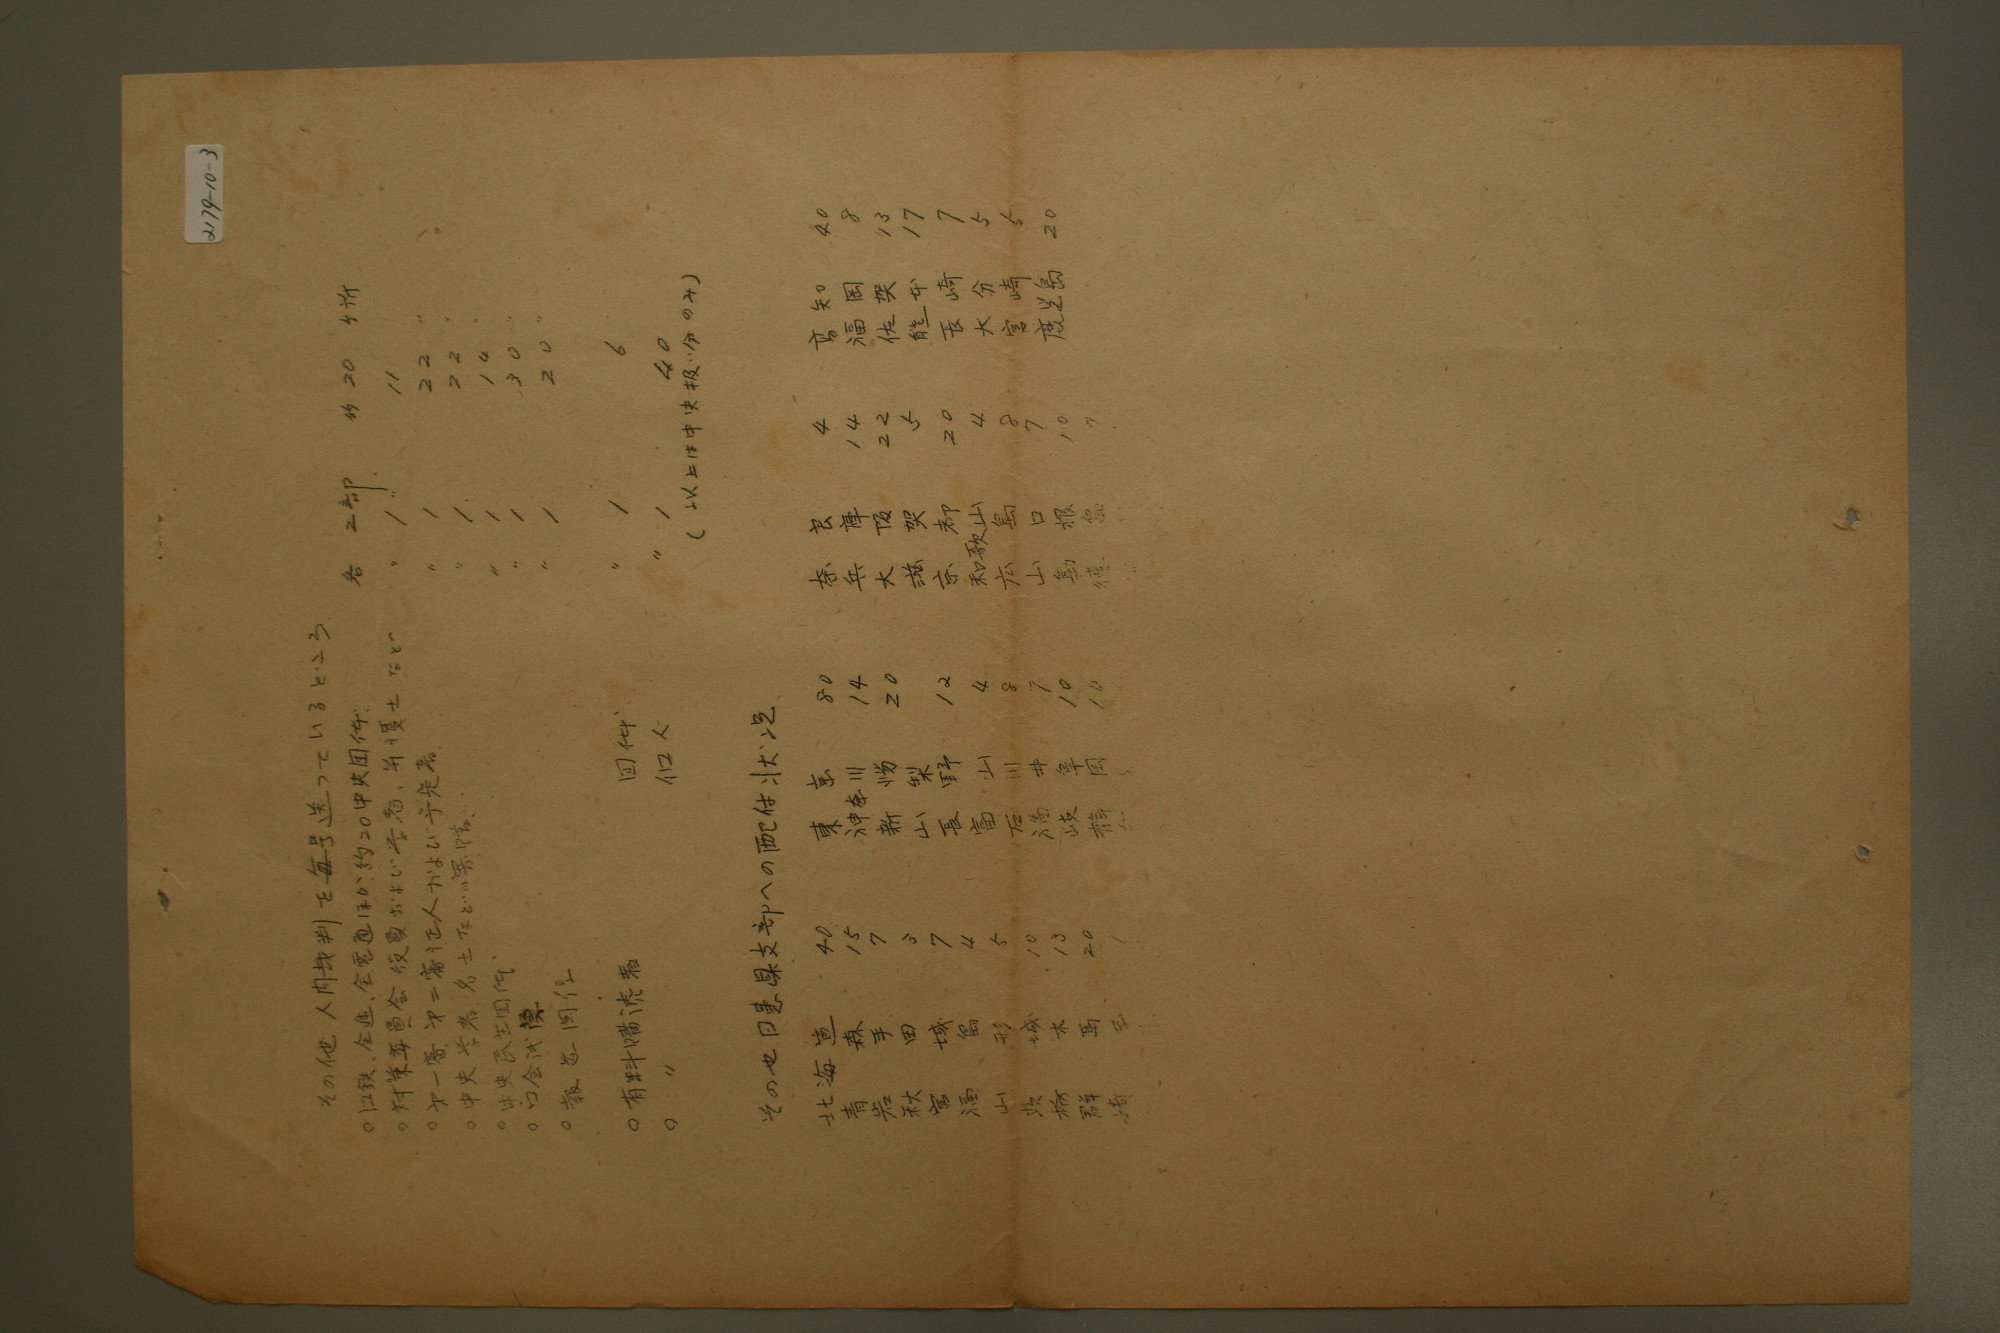 2179-10-3
その他 人間裁判を毎号送っているところ
○口鉄、全逓、全電通ほか、約20中央団体 各 2部 約20ヶ所
○対策委員会役員および学者、弁護士など 〃 1〃 11
○才一審、才二審証人および予定者 〃 1 22 〃
○中央学者名士など 〃 1 22 〃
○中央民主団体 〃 1 14 〃
○口会 〃 1 30 〃
○報道関係 〃 1 20 〃
○有料購読者 団体 〃 1 6
○ 〃 個人 〃 1 40
(以上は中央扱い分のみ)
その他日患県支部への配付状況
北海道 40 東京 80 奈良 4 高知 40
青森 15 神奈川 14 兵庫 14 福岡 8
岩手 7 新潟 20 大阪 22 佐賀 13
秋田 3 山梨 滋賀 5 熊本 17
宮城 7 長野 12 京都 20 長崎 7
福島 4 富山 4 和歌山 4 大分 5
山形 5 石川 8 広島 8 宮崎 5
茨城 10 福井 7 山口 7 鹿児島 20
栃木 13 岐阜 10 島根 10
群馬 20 静岡 10 徳島 7